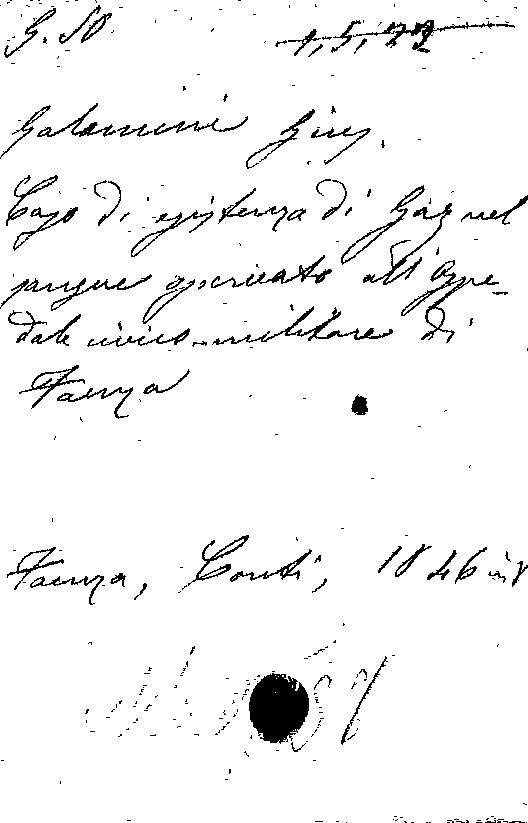 G. 50. 1, 5, 22
Galamini Gius.
Caso di esistenza di Gaz nel
sangue osservato all'Ospe-
dale civico-militare di
Faenza
Faenza, Conti, 1846 in 8